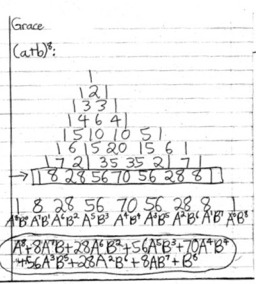 Grace
(a+b)⁸:
1
1 2 1
1 3 3 1
1 4 6 4 1
1 5 10 10 5 1
1 6 15 20 15 6 1
1 7 21 35 35 21 7 1
→ 1 8 28 56 70 56 28 8 1
1 8 28 56 70 56 28 8 1
A⁸B⁰ A⁷B¹ A⁶B² A⁵B³ A⁴B⁴ A³B⁵ A²B⁶ A¹B⁷ A⁰B⁸
A⁸+8A⁷B+28A⁶B²+56A⁵B³+70A⁴B⁴
+56A³B⁵+28A²B⁶+8AB⁷+B⁸